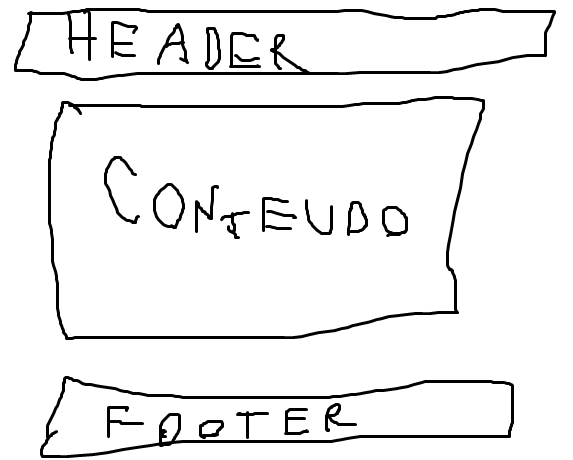 HEADER
CONTEUDO
FOOTER